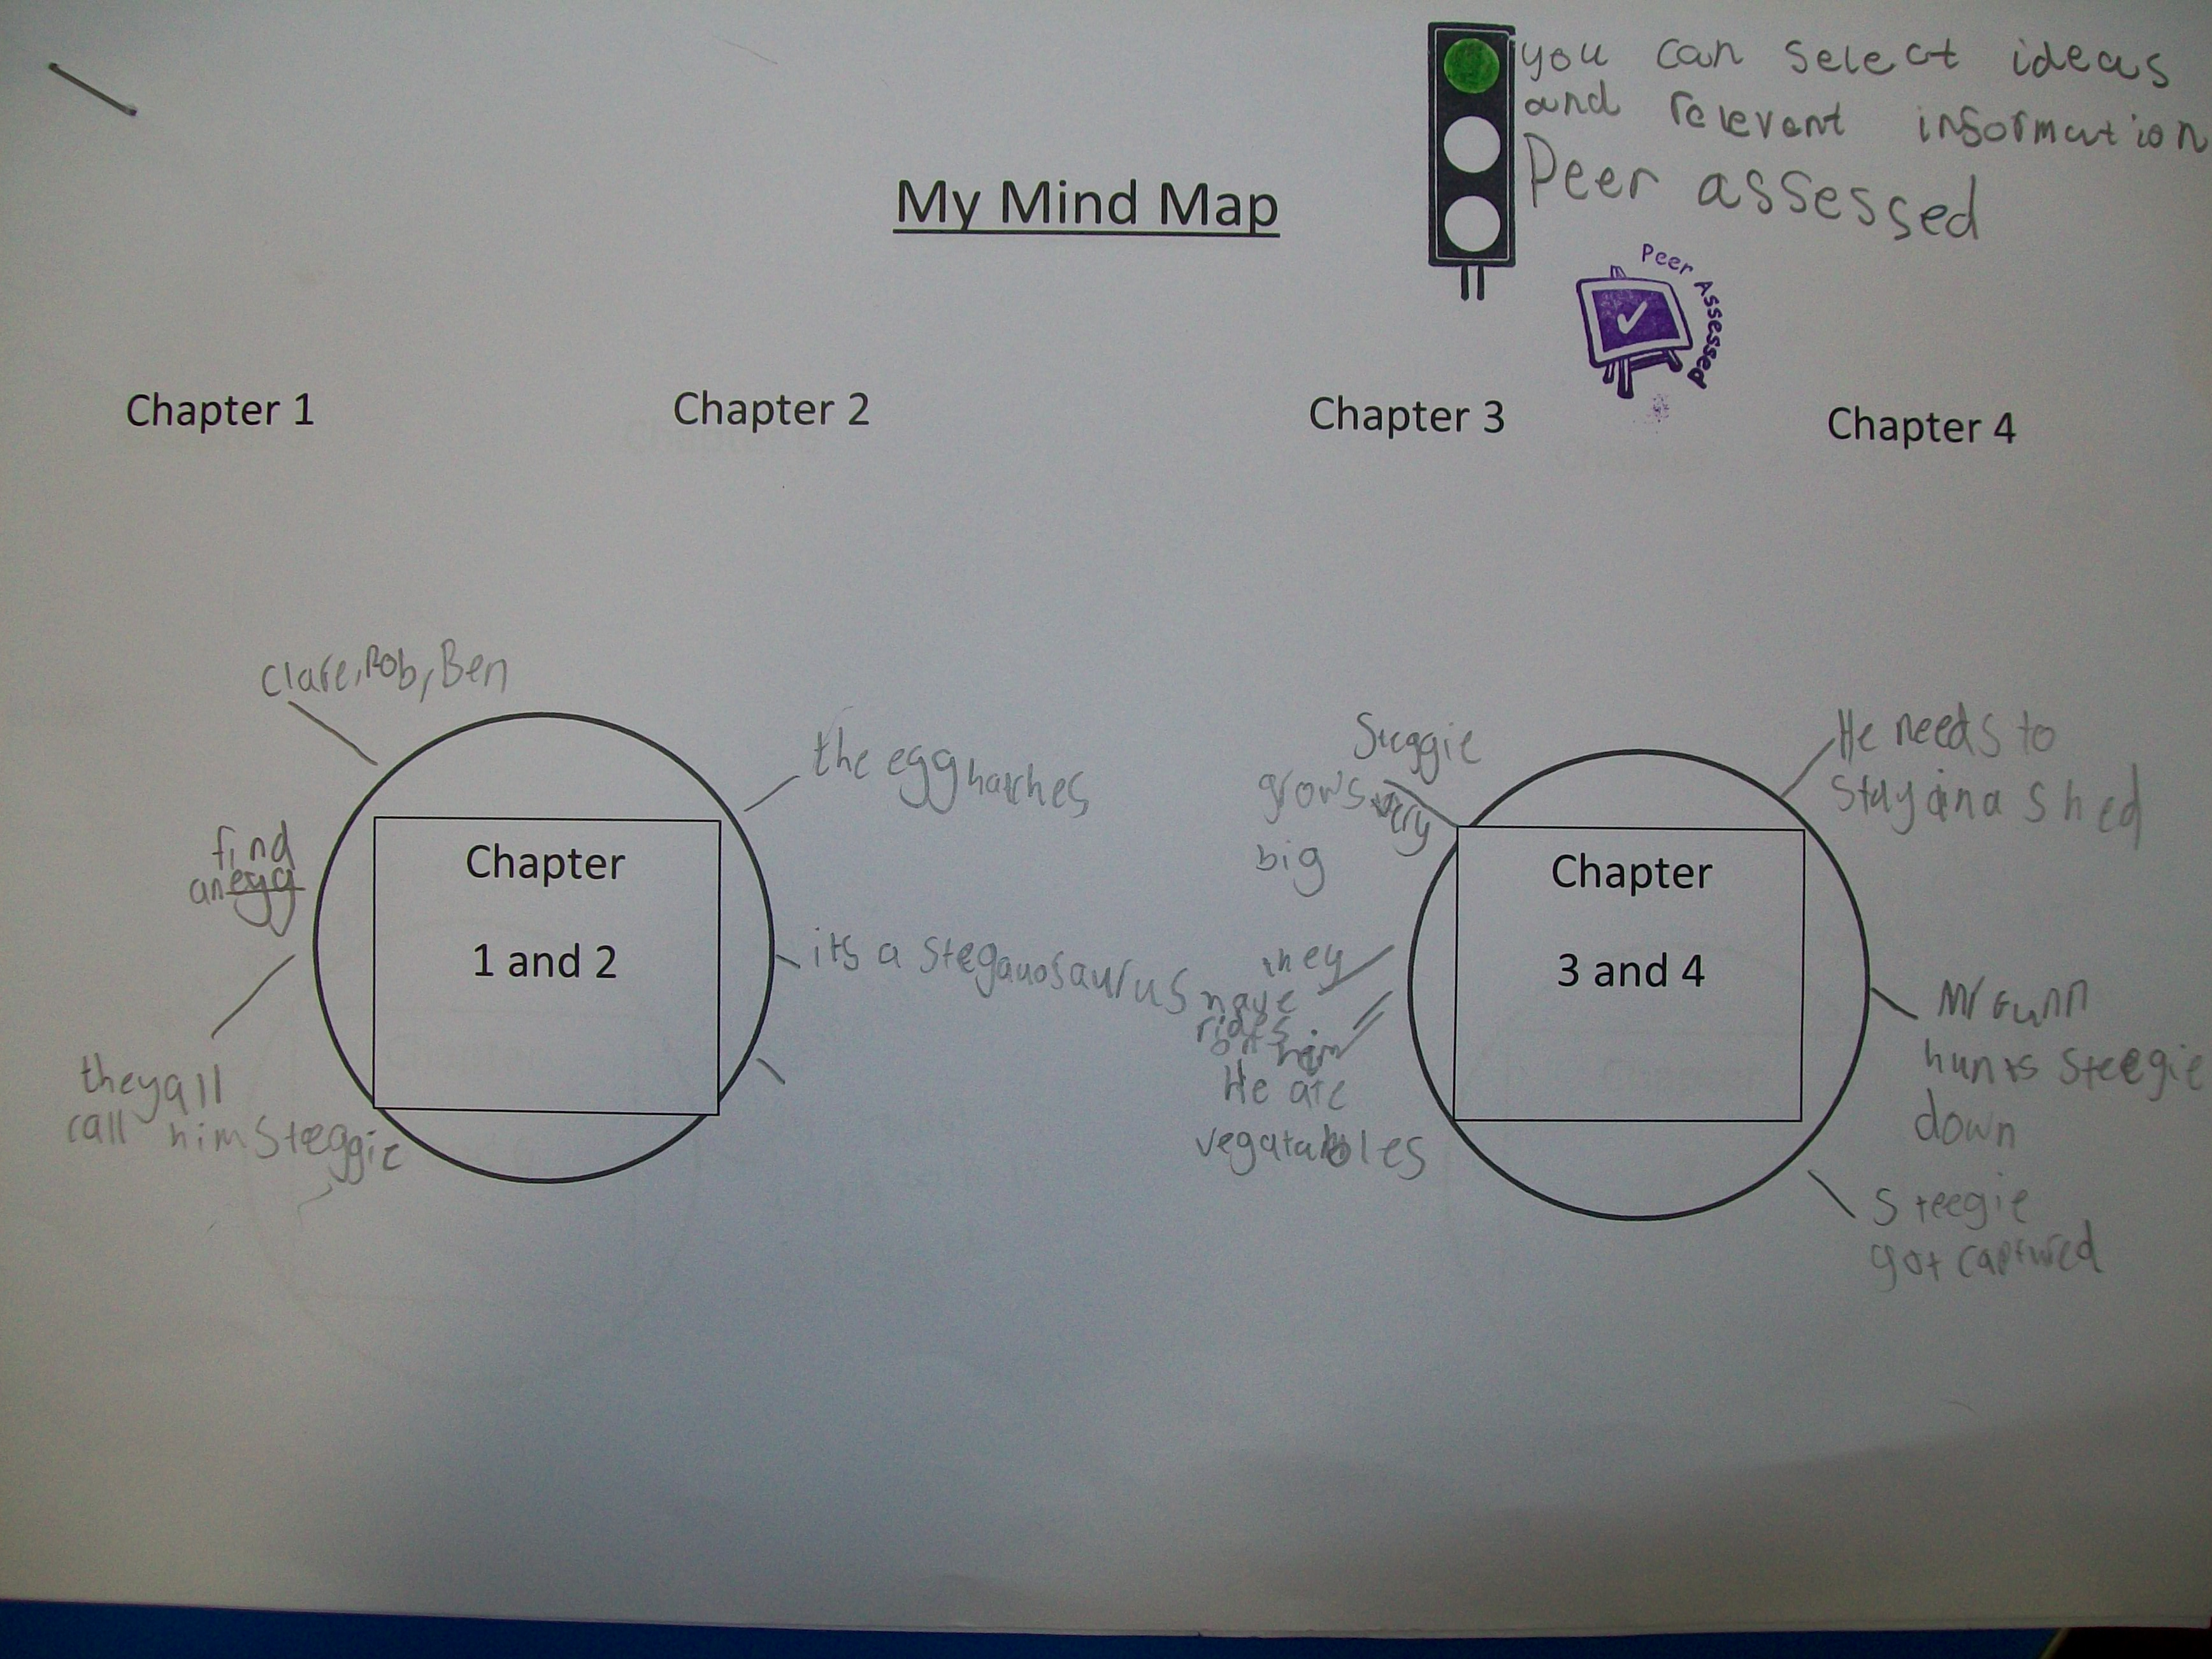 you can select ideas
and relevent information
Peer assessed
My Mind Map
Peer Assessed
Chapter 1
Chapter 2
Chapter 3
Chapter 4
Clare, Rob, Ben
find
an egg
they all
call him Steggie
Chapter
1 and 2
the egg hatches
its a Steganosaurus
grows very
big
they
have
rides
on him
He ate
vegatables
Chapter
3 and 4
He needs to
stay in a shed
Mr Gunn
hunts Steegie
down
Steegie
got captured